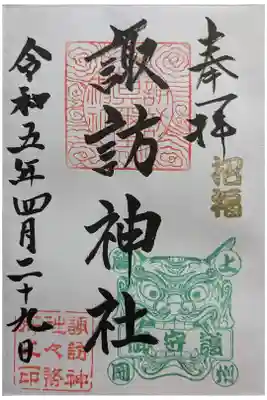 奉拝
招福
諏訪神社
令和五年四月二十九日
諏訪神
社々務
所之印
上州